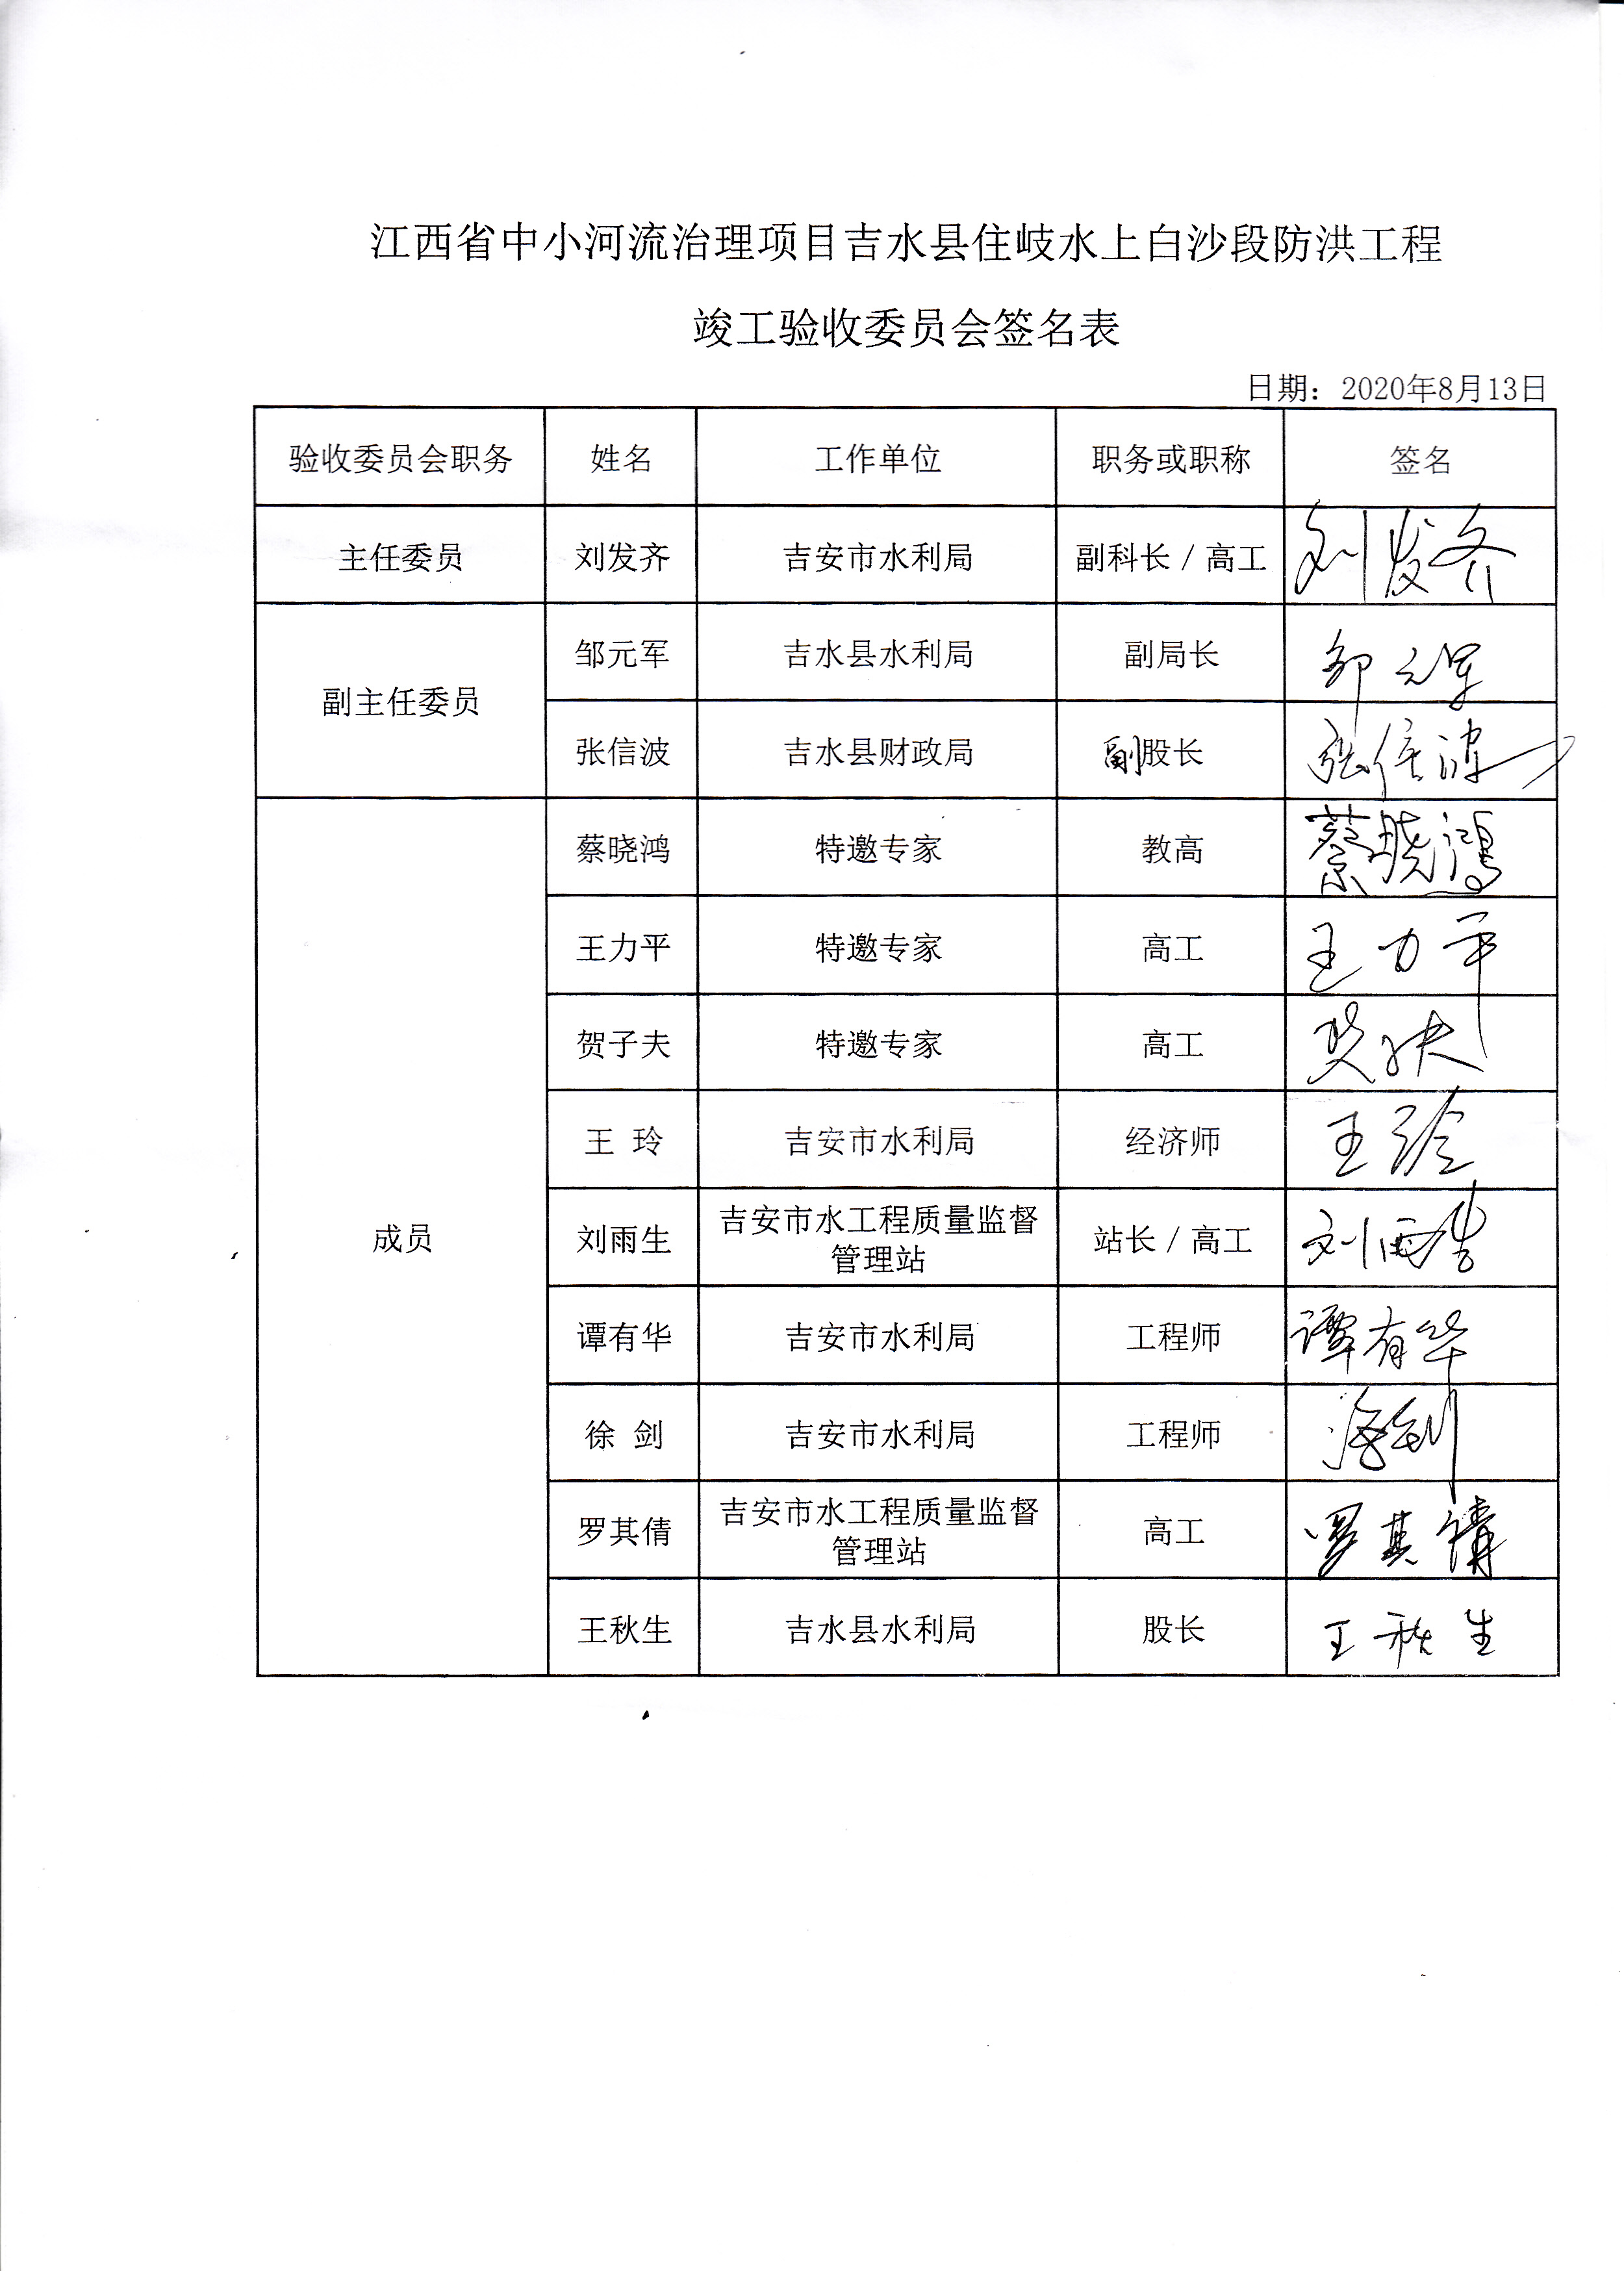 江西省中小河流治理项目吉水县住岐水上白沙段防洪工程
竣工验收委员会签名表
日期：2020年8月13日
验收委员会职务 姓名 工作单位 职务或职称 签名
主任委员 刘发齐 吉安市水利局 副科长 / 高工 刘发齐
副主任委员
邹元军 吉水县水利局 副局长 邹元军
张信波 吉水县财政局 副股长 张信波
成员
蔡晓鸿 特邀专家 教高 蔡晓鸿
王力平 特邀专家 高工 王力平
贺子夫 特邀专家 高工 贺子夫
王 玲 吉安市水利局 经济师 王玲
刘雨生 吉安市水工程质量监督
管理站 站长 / 高工 刘雨生
谭有华 吉安市水利局 工程师 谭有华
徐 剑 吉安市水利局 工程师 徐剑
罗其倩 吉安市水工程质量监督
管理站 高工 罗其倩
王秋生 吉水县水利局 股长 王秋生